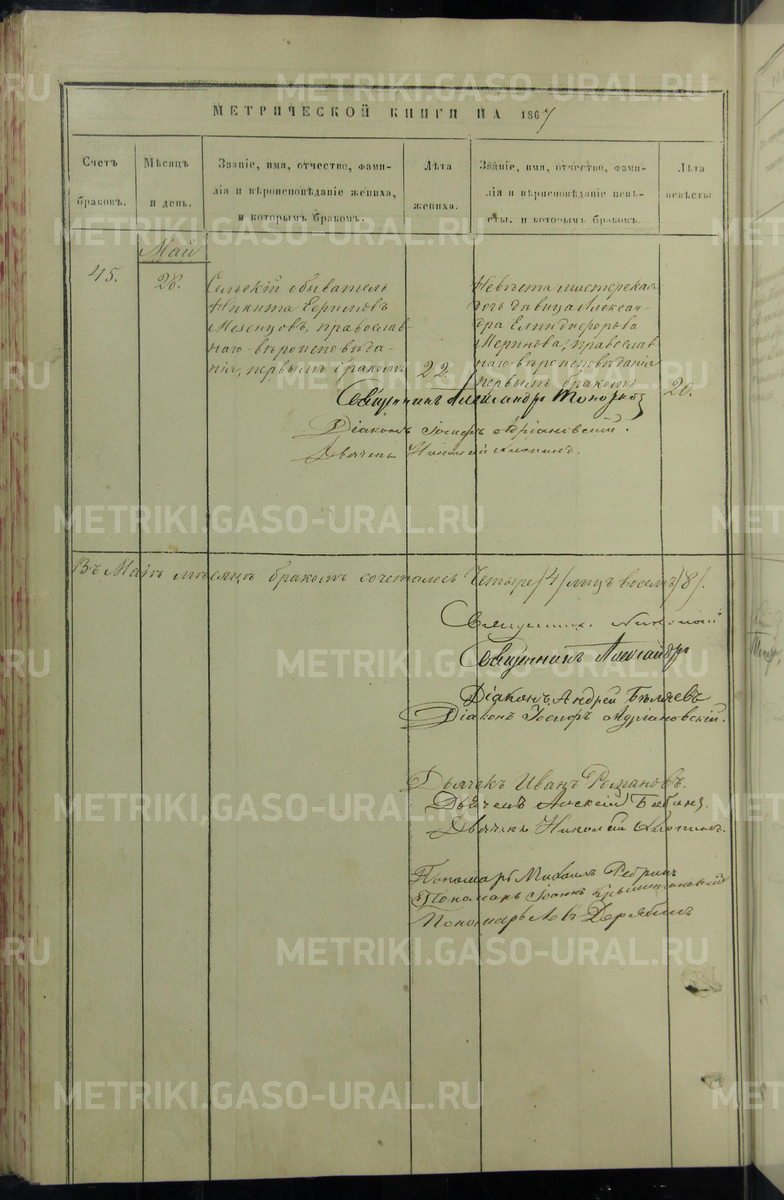 МЕТРИЧЕСКОЙ КНИГИ НА 1867
Счетъ браковъ.
Мѣсяцъ и день.
Званіе, имя, отчество, фами-
лія и вѣроисповѣданіе жениха,
и которымъ бракомъ.
Лѣта жениха.
Званіе, имя, отчество, фами-
лія и вѣриисповѣданіе невѣ-
сты, и которымъ бракомъ.
Лѣта невѣсты
Май
45.
28.
Сельскій обыватель
Никита
православ
наго вѣроисповѣда
нія, первымъ бракомъ
22
Невѣста мастерская
дочь дѣвица Алексан-
дра
православ
наго вѣроисповѣданія
первымъ бракомъ
20.
Священникъ Александръ
Діаконъ Іосифъ Адріановскій.
Дьячекъ Николай
Въ Маѣ мѣсяцѣ бракомъ сочеталось Четыре /4/ лицъ восемь /8/.
Священникъ
Священникъ Александръ
Діаконъ Андрей Бѣляевъ
Діаконъ Іосифъ Адріановскій.
Дьячекъ Иванъ Романовъ.
Дьячекъ
Дьячекъ Николай
Пономарь Михаилъ
Пономарь
Пономарь Левъ Дерябинъ
METRIKI.GASO-URAL.RU